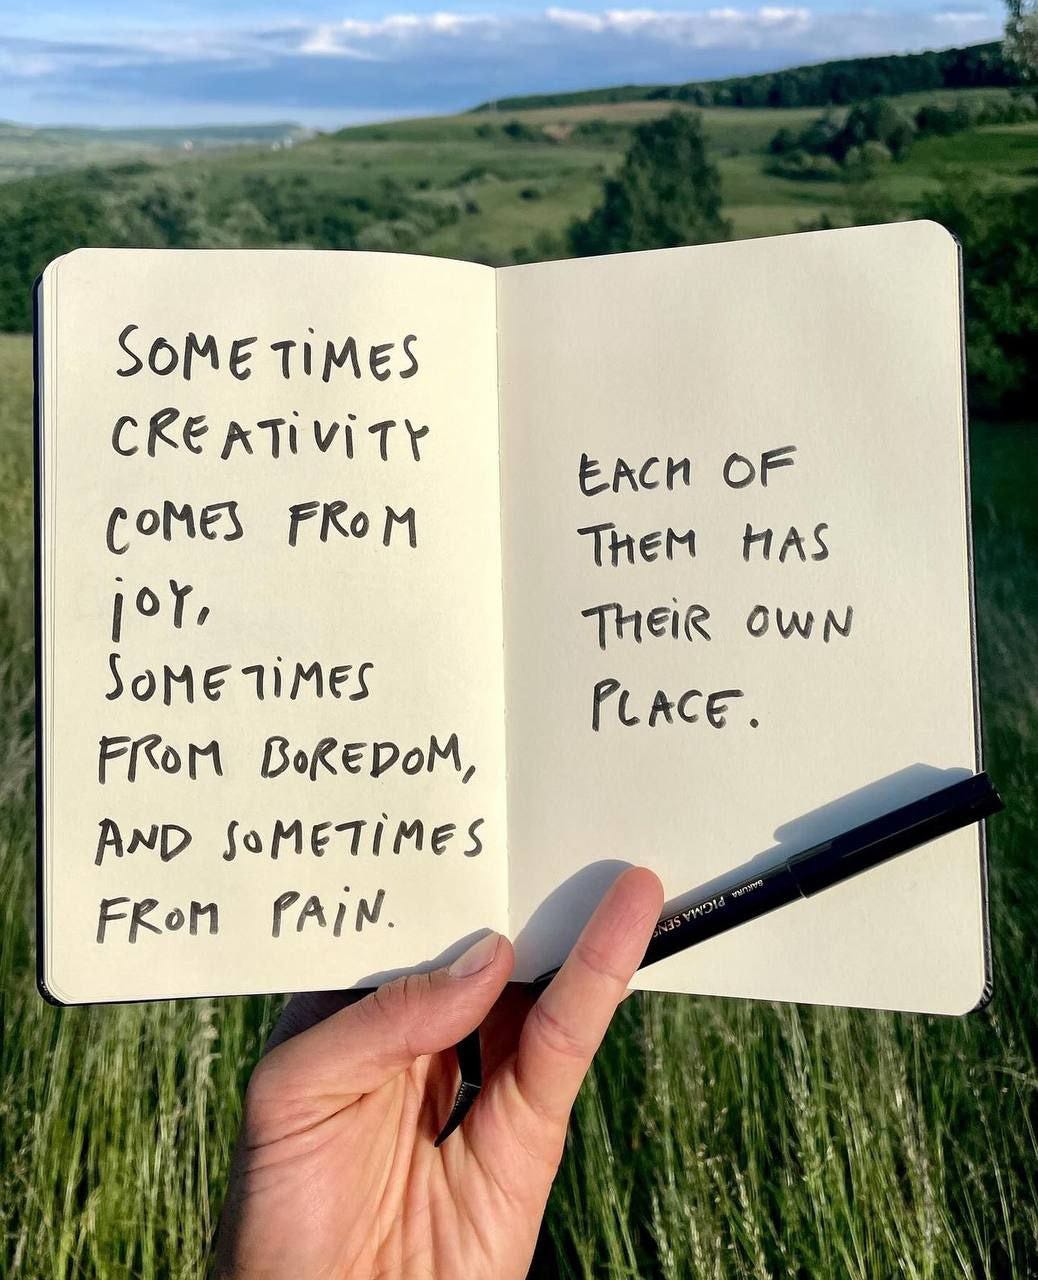 SOMETIMES
CREATIVITY
COMES FROM
JOY,
SOMETIMES
FROM BOREDOM,
AND SOMETIMES
FROM PAIN.
EACH OF
THEM HAS
THEIR OWN
PLACE.
SAKURA PIGMA SENS